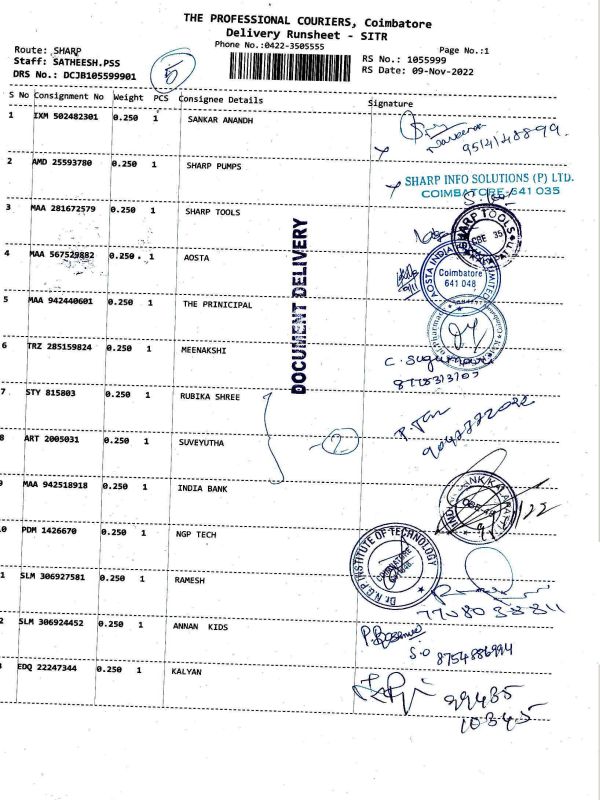 THE PROFESSIONAL COURIERS, Coimbatore
Delivery Runsheet - SITR
Phone No.:0422-3505555
Page No.:1
Route: SHARP
Staff: SATHEESH.PSS
DRS No.: DCJB105599901
5
RS No.: 1055999
RS Date: 09-Nov-2022
S No Consignment No Weight PCS Consignee Details Signature
1 IXM 502482301 0.250 1 SANKAR ANANDH
9514148899.
2 AMD 25593780 0.250 1 SHARP PUMPS
SHARP INFO SOLUTIONS (P) LTD.
COIMBATORE-641 035
3 MAA 281672579 0.250 1 SHARP TOOLS
SHARP TOOLS
CBE 35
4 MAA 567529882 0.250 1 AOSTA
AOSTA INDIA
Coimbatore
641 048
5 MAA 942440601 0.250 1 THE PRINICIPAL
DOCUMENT DELIVERY
6 TRZ 285159824 0.250 1 MEENAKSHI
7 STY 815803 0.250 1 RUBIKA SHREE
2
8 ART 2005031 0.250 1 SUVEYUTHA
9 MAA 942518918 0.250 1 INDIA BANK
0 PDM 1426670 0.250 1 NGP TECH
Dr. N.G.P. INSTITUTE OF TECHNOLOGY
COIMBATORE
1 SLM 306927581 0.250 1 RAMESH
77080 38811
2 SLM 306924452 0.250 1 ANNAN KIDS
S.O 8754886994
EDQ 22247344 0.250 1 KALYAN
99435
10345